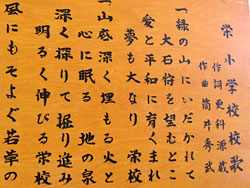 栄小学校校歌
作詞 更科源蔵
作曲 筒井秀武
一緑の山にいだかれて
大石狩を望むとこ
愛と平和に育くまれ
夢も大なり 栄校
一山脈深く埋もる火と
心に眠る 地の泉
深く探りて掘り進み
明るく伸びる栄校
風にもそよぐ若草の